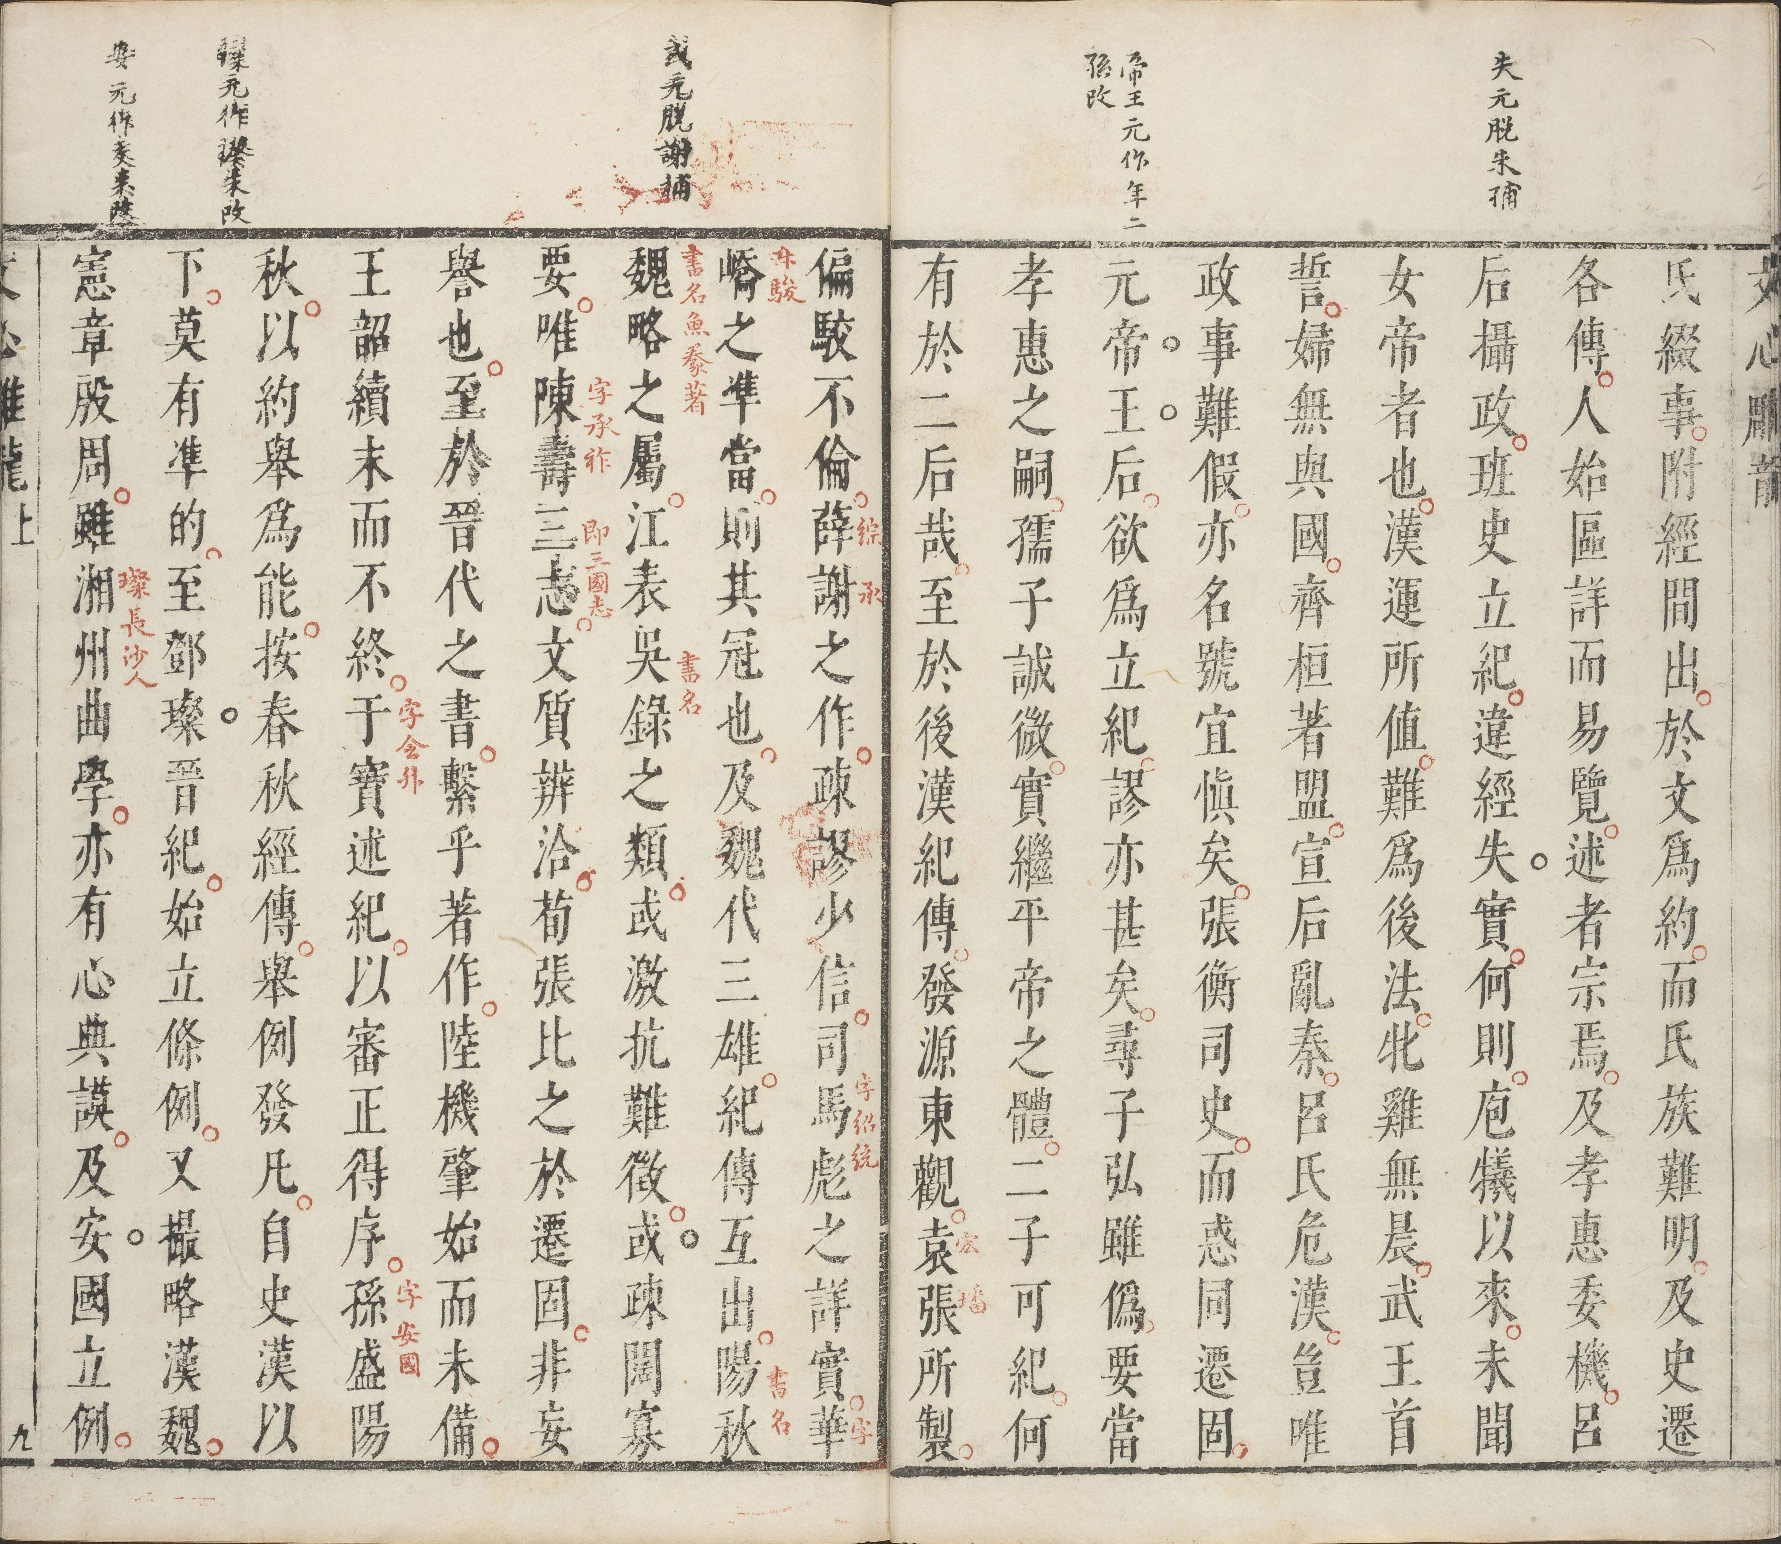 文心雕龍
失元脫朱補
帝王元作年二
孫改
氏綴事附經間出於文爲約而氏族難明及史遷
各傳人始區詳而易覽述者宗焉及孝惠委機呂
后攝政班史立紀違經失實何則庖犧以來未聞
女帝者也漢運所值難爲後法牝雞無晨武王首
誓婦無與國齊桓著盟宣后亂秦呂氏危漢豈唯
政事難假亦名號宜慎矣張衡司史而惑同遷固
元帝王后欲爲立紀謬亦甚矣尋子弘雖僞要當
孝惠之嗣孺子誠微實繼平帝之體二子可紀何
有於二后哉至於後漢紀傳發源東觀袁張所製
宏 璠
或元脫謝補
璨元作璨朱改
安元作交朱改
偏駮不倫薛謝之作疎謬少信司馬彪之詳實華
綜 承 字紹統 字
嶠之準當則其冠也及魏代三雄紀傳互出陽秋
叔駿 書名
魏略之屬江表吳錄之類或激抗難徵或疎闊寡
書名魚豢著 書名
要唯陳壽三志文質辨洽荀張比之於遷固非妄
字承祚 即三國志
譽也至於晉代之書繫乎著作陸機肇始而未備
王韶續末而不終于寶述紀以審正得序孫盛陽
字令升 字安國
秋以約舉爲能按春秋經傳舉例發凡自史漢以
下莫有準的至鄧璨晉紀始立條例又撮略漢魏
憲章殷周雖湘州曲學亦有心典謨及安國立例
璨長沙人
文心雕龍上
九